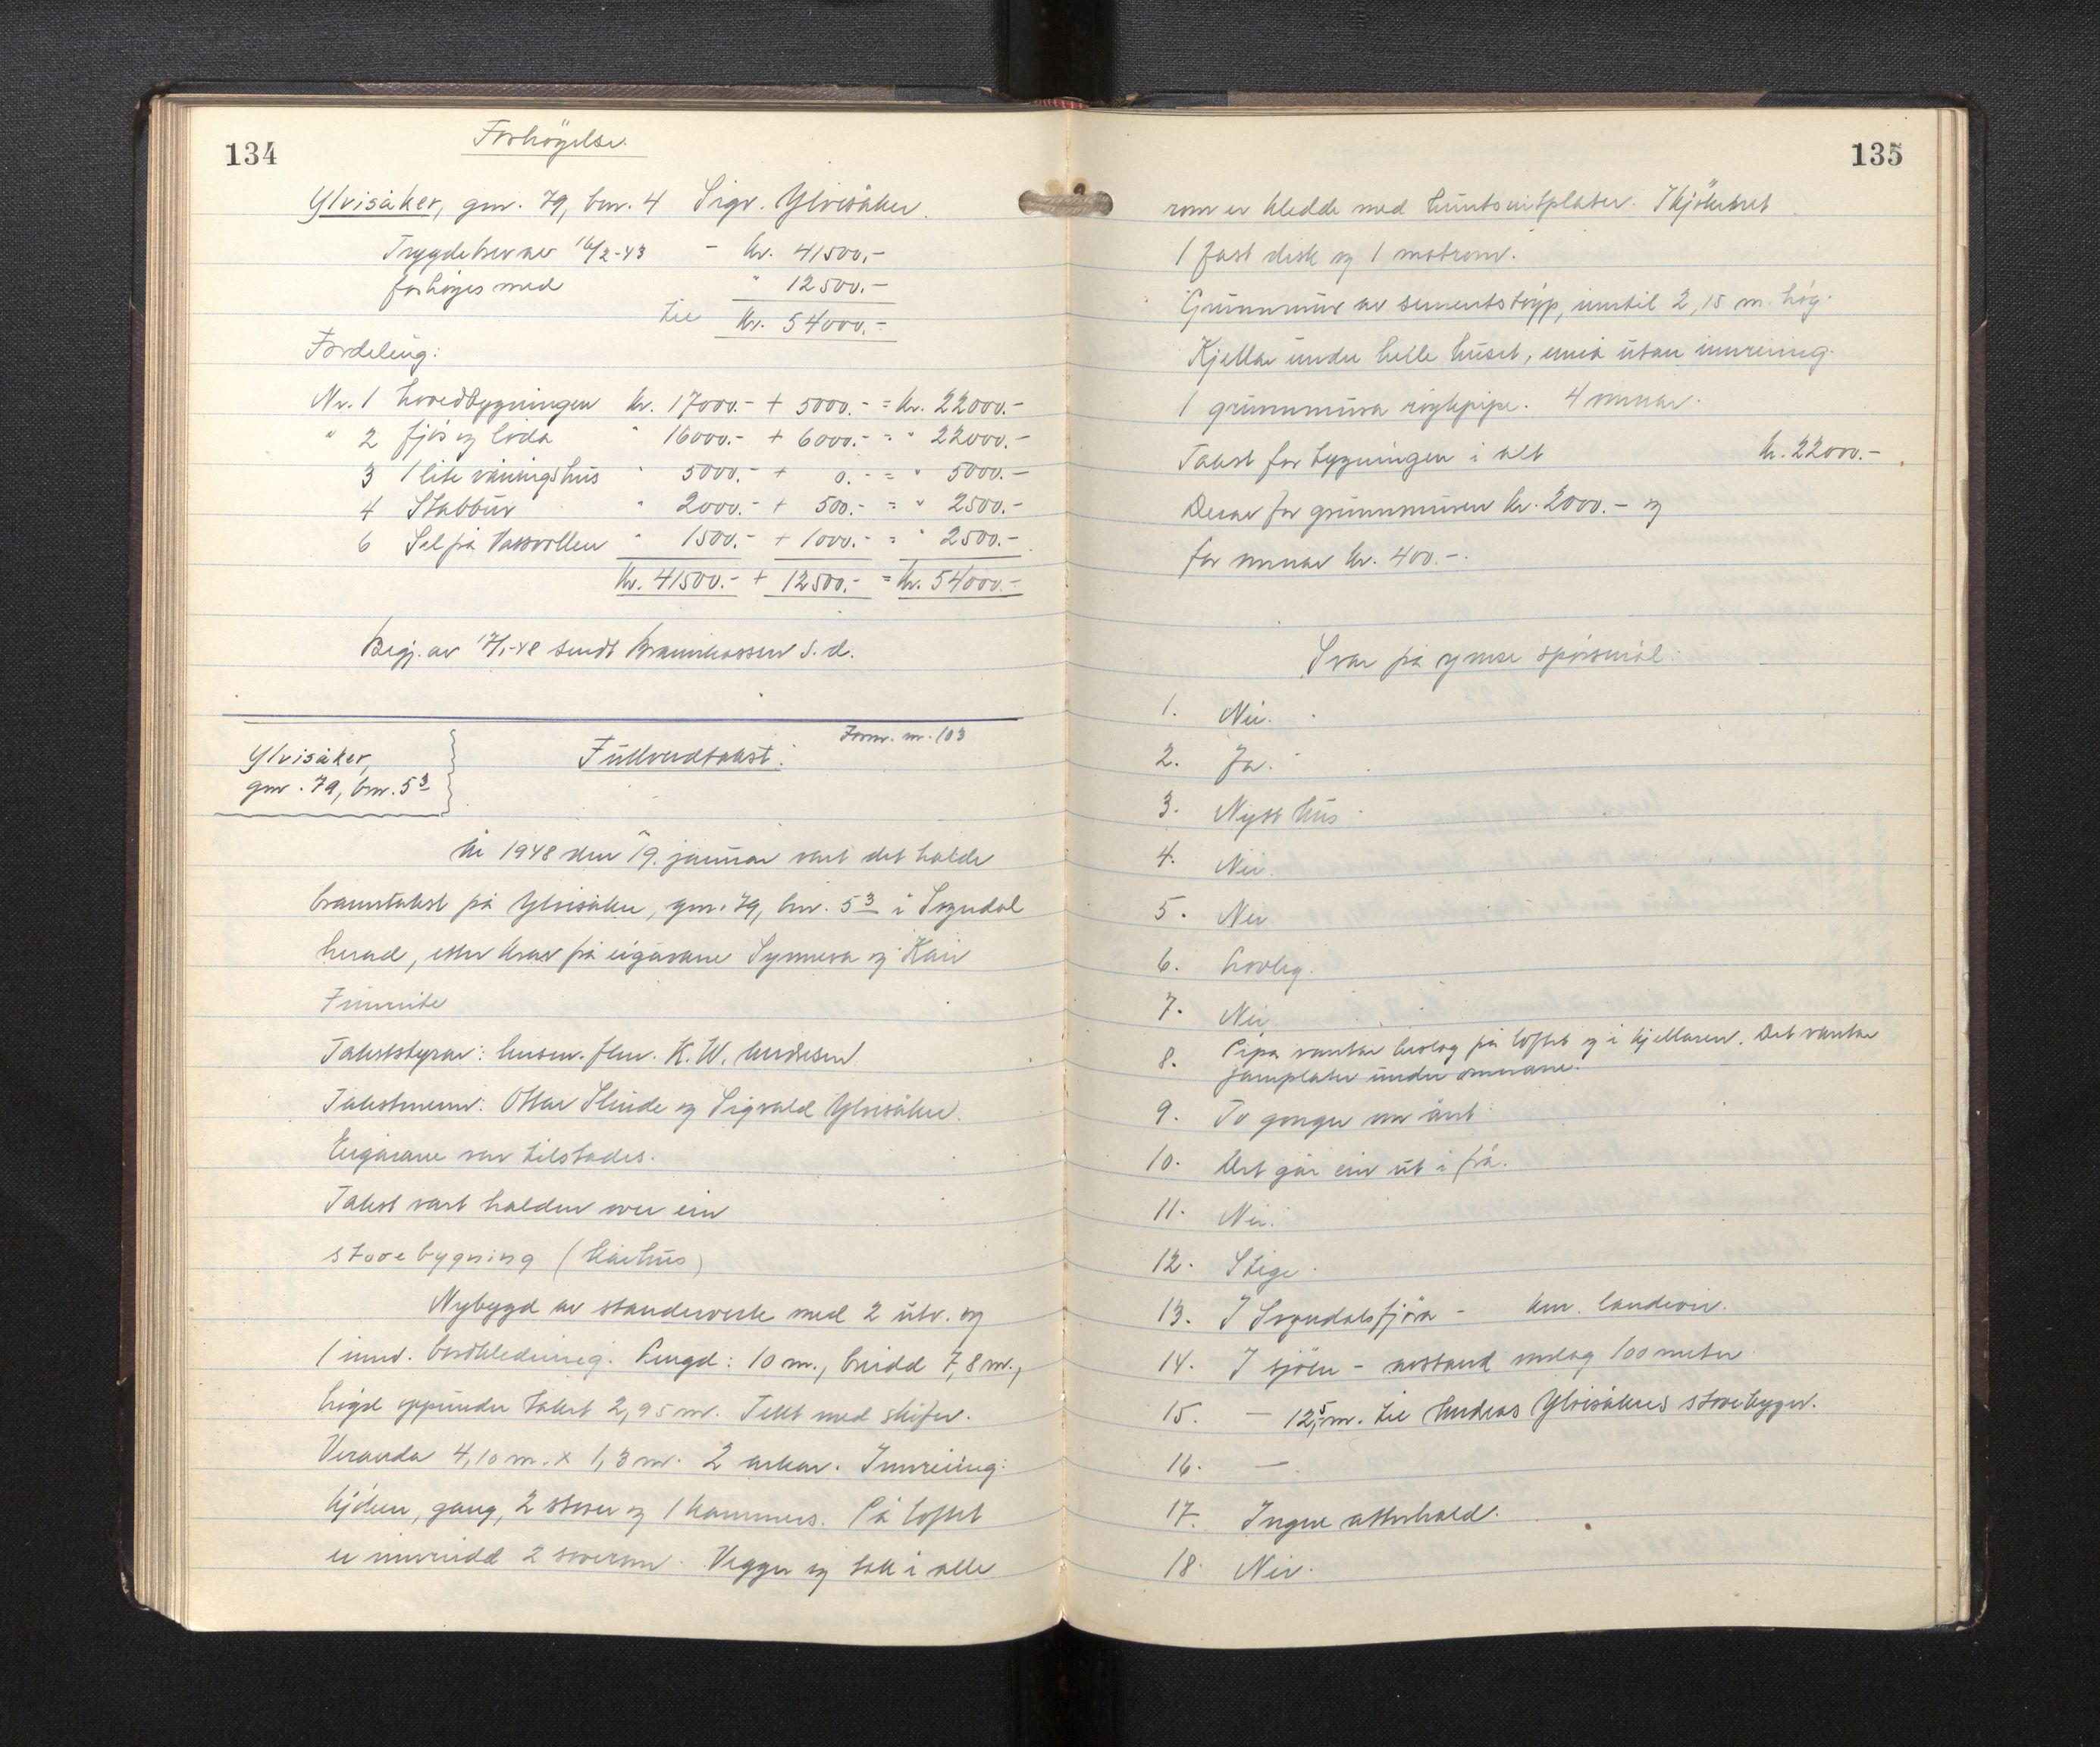 134
Forhögelse.
Ylvisåker, gnr. 79, bnr. 4 Sigv. Ylvisåker.
Trygdebrev av 16/2-43 - kr. 41500,-
forhöges med " 12500.-
til kr. 54000.-
Fordeling:
Nr. 1 hovedbygningen kr. 17000.- + 5000.- = kr. 22000.-
" 2 fjös og löda " 16000.- + 6000.- = " 22000.-
3 1 lite våningshus " 5000.- + 0.- = " 5000.-
4 Stabbur " 2000.- + 500.- = " 2500.-
6 Sel på Vassvollen " 1500.- + 1000.- = " 2500.-
kr. 41500.- + 12500.- = kr. 54000.-
Begj. av 17/1-48 sendt Brannkassen s. d.
Form. nr. 103
Ylvisåker, Fullverdtakst:
gnr. 79, bnr. 5³
År 1948 den 19. januar vart det halde
branntakst på Ylvisåker, gnr. 79, bnr. 5³ i Sogndal
herad, etter krav på eigarane Synneva og Kari
Takststyrar: lensm. flm. K. W. Andersen
Takstmenn: Ottar Slinde og Sigvald Ylvisåker.
Eigarane var tilstades.
Takst vart halden over ein
stovebygning (kårhus)
Nybygd av standerverk med 2 utv. og
1 innv. bordkledning. Lengd: 10 m., breidd 7,8 m.,
högd uppunder taket 2,95 m. Tekt med skifer.
Veranda 4,10 m. x 1,3 m. 2 arkar. Innreiing:
kjöken, gang, 2 stover og 1 kammers. På loftet
er innreidd 2 soverom. Vegger og tak i alle
135
rom er kledde med huntonitplater. I kjökenet
1 fast disk og 1 matrom.
Grunnmur av sementstöyp, inntil 2,15 m. hög.
Kjellar under heile huset, enno utan innreiing.
1 grunnmura röykpipe. 4 omnar.
Takst for bygningen i alt kr. 22000.-
Derav for grunnmuren kr. 2000.- og
for omnar kr. 400.-.
Svar på ymse spörsmål:
1. Nei.
2. Ja.
3. Nytt hus
4. Nei.
5. Nei
6. Lovleg.
7. Nei
8. Pipa vantar beslag på loftet og i kjellaren. Det vantar
jarnplater under omnane.
9. To gonger um året
10. Det går ein ut i frå.
11. Nei.
12. Stige.
13. I Sogndalsfjöra - km. landevei.
14. I sjöen - avstand umlag 100 meter
15. - 12,5 m. til Andreas Ylvisåkers stovebygn.
16. -
17. Ingen atterhald.
18. Nei.